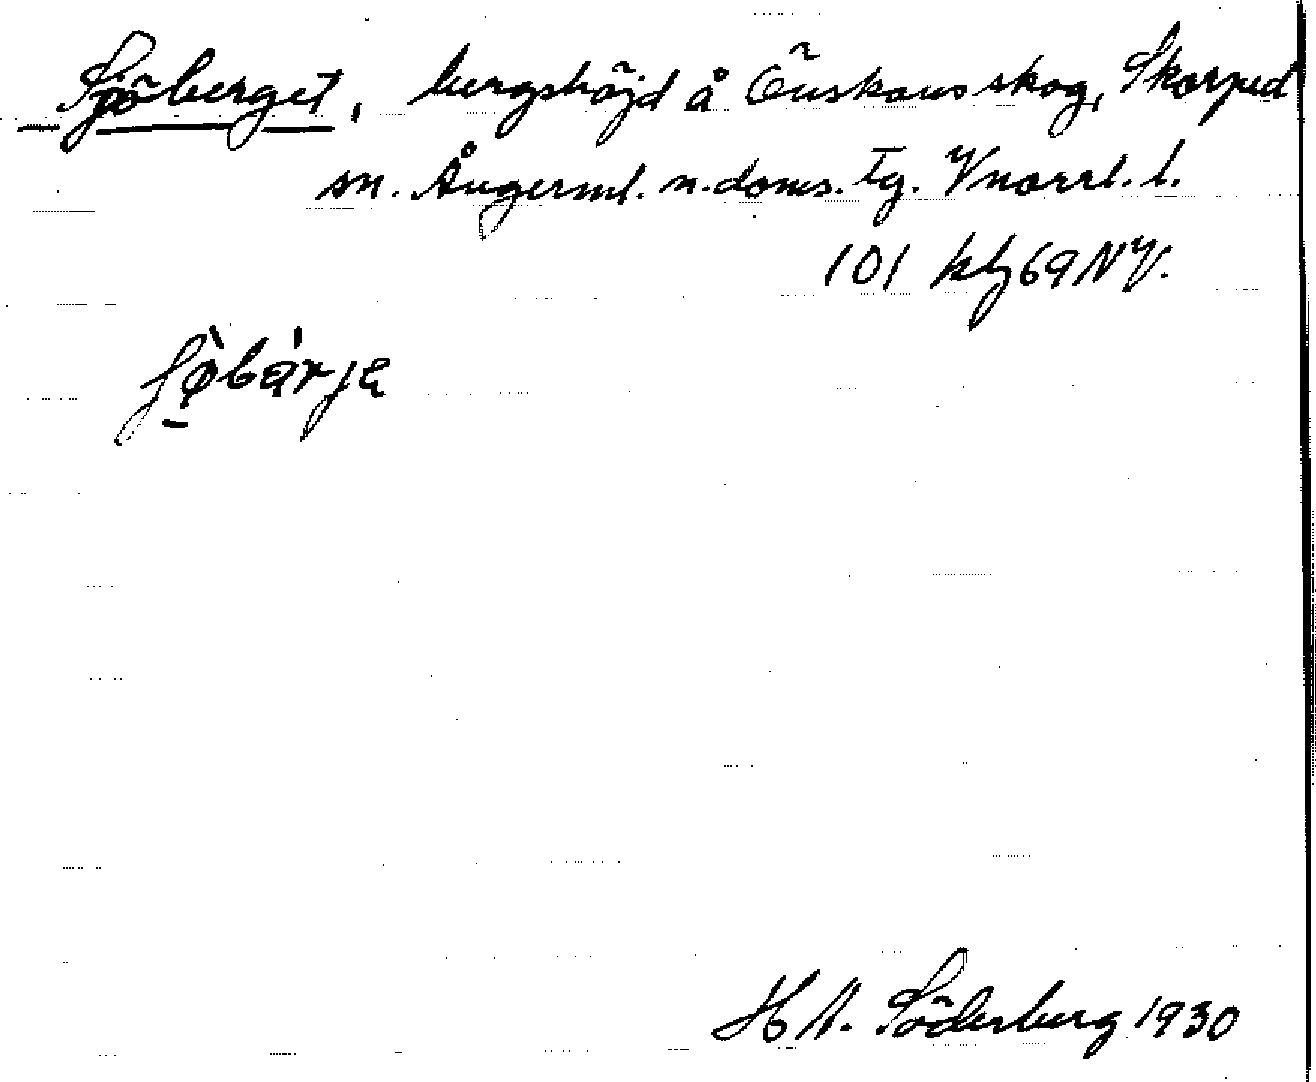 Sjöberget, bergshöjd å Önskans skog, Skorped
sn. Ångerml. n. doms. Tg. Vnorrl. l.
101 kbg 69 NV.
H N. Söderberg 1930